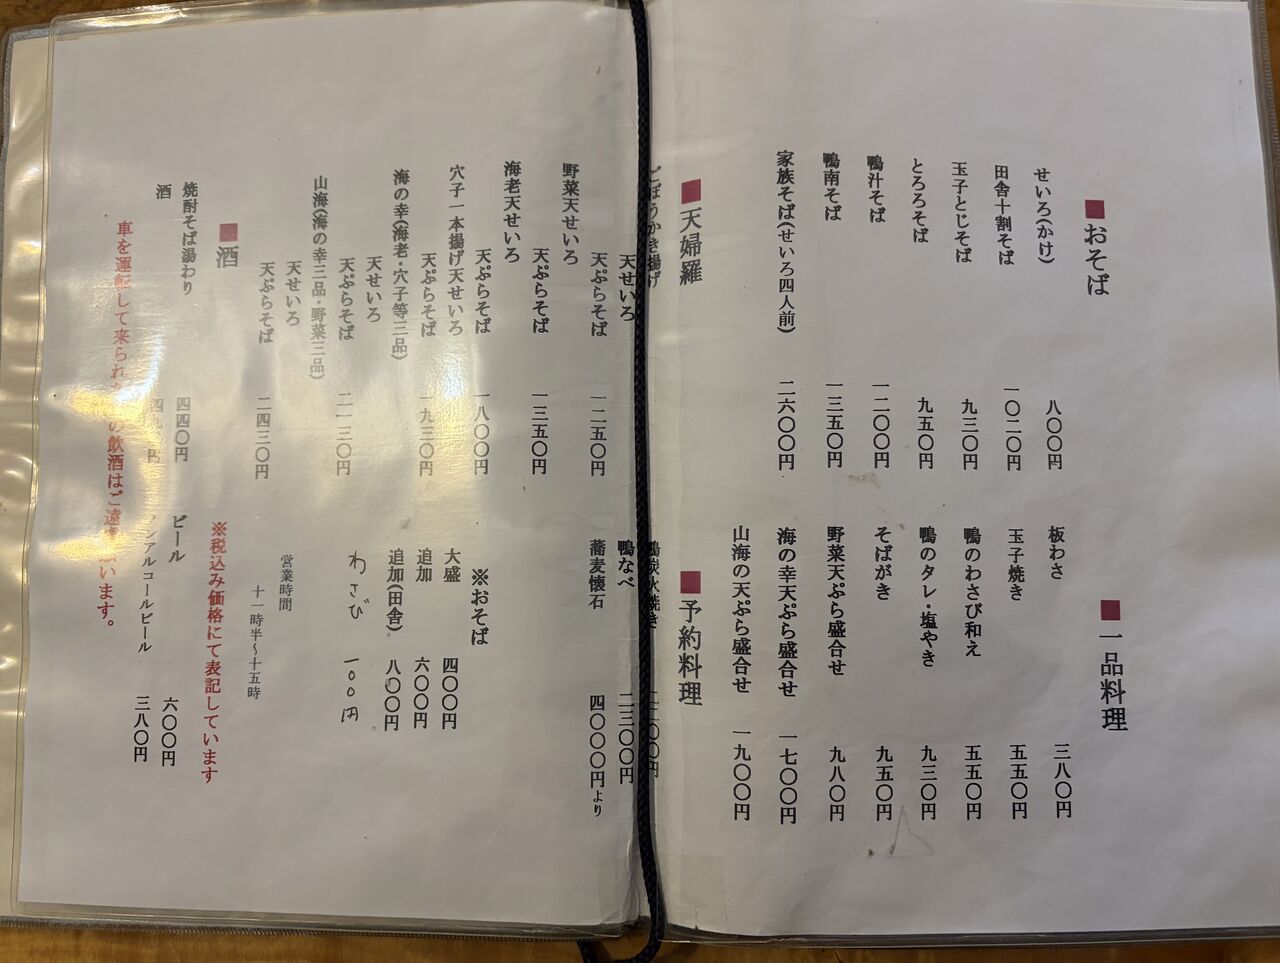 ■おそば
せいろ(かけ) 八〇〇円
田舎十割そば 一〇二〇円
玉子とじそば 九三〇円
とろろそば 九五〇円
鴨汁そば 一二〇〇円
鴨南そば 一三五〇円
家族そば(せいろ四人前) 二六〇〇円
■一品料理
板わさ 三八〇円
玉子焼き 五五〇円
鴨のわさび和え 五五〇円
鴨のタレ・塩やき 九三〇円
そばがき 九五〇円
野菜天ぷら盛合せ 九八〇円
海の幸天ぷら盛合せ 一七〇〇円
山海の天ぷら盛合せ 一九〇〇円
■天婦羅
ごぼうかき揚げ
天せいろ
天ぷらそば 一二五〇円
野菜天せいろ
天ぷらそば 一三五〇円
海老天せいろ
天ぷらそば 一八〇〇円
穴子一本揚げ天せいろ
天ぷらそば 一九三〇円
海の幸(海老・穴子等三品)
天せいろ
天ぷらそば 二一三〇円
山海(海の幸三品・野菜三品)
天せいろ
天ぷらそば 二四三〇円
■予約料理
鴨炭火焼き
鴨なべ 二三〇〇円
蕎麦懐石 四〇〇〇円より
※おそば
大盛 四〇〇円
追加 六〇〇円
追加(田舎) 八〇〇円
わさび 一〇〇円
営業時間
十一時半～十五時
■酒
焼酎そば湯わり 四四〇円
酒
ビール 六〇〇円
ノンアルコールビール 三八〇円
※税込み価格にて表記しています
車を運転して来られ の飲酒はご遠 います。